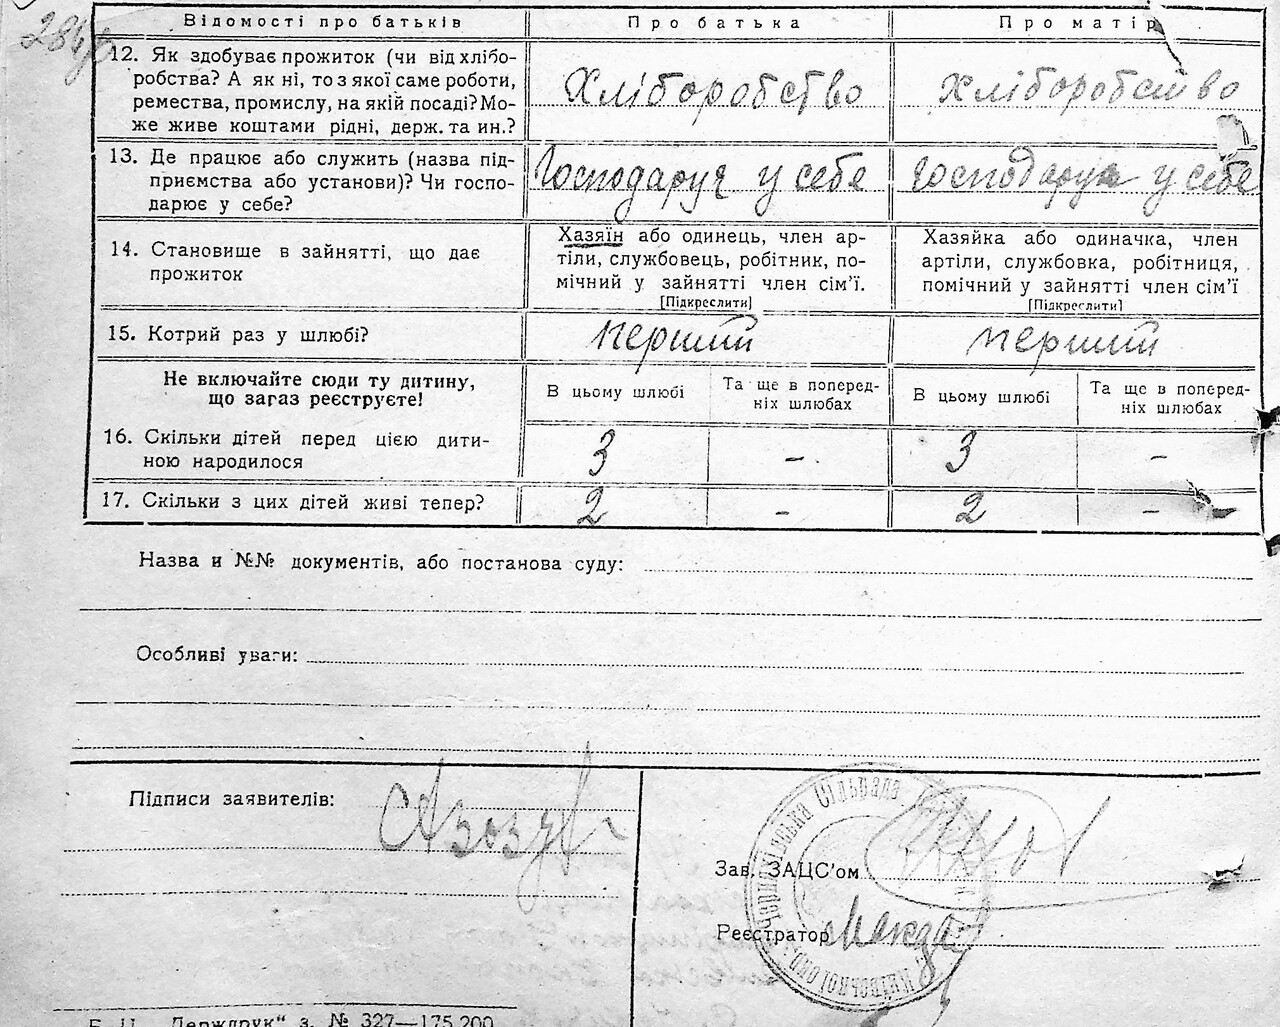 284
Відомості про батьків Про батька Про матір
12. Як здобуває прожиток (чи від хлібо-
робства? А як ні, то з якої саме роботи,
ремества, промислу, на якій посаді? Мо-
же живе коштами рідні, держ. та ин.?
Хліборобство Хліборобство
13. Де працює або служить (назва під-
приємства або установи)? Чи госпо-
дарює у себе?
Господарує у себе Господарує у себе
14. Становище в зайнятті, що дає
прожиток
Хазяїн або одинець, член ар-
тіли, службовець, робітник, по-
мічний у зайнятті член сім’ї.
[Підкреслити]
Хазяйка або одиначка, член
артіли, службовка, робітниця,
помічний у зайнятті член сім’ї
[Підкреслити]
15. Котрий раз у шлюбі? перший перший
Не включайте сюди ту дитину,
що загаз реєструєте!
В цьому шлюбі
Та ще в поперед-
ніх шлюбах
В цьому шлюбі
Та ще в поперед-
ніх шлюбах
16. Скільки дітей перед цією дити-
ною народилося
3 - 3 -
17. Скільки з цих дітей живі тепер? 2 - 2 -
Назва и №№ документів, або постанова суду:
Особливі уваги:
Підписи заявителів:
Зав. ЗАЦС’ом
Реєстратор
Сільрада
Київської окр.
Б. Ц. „Держдрук“ з. № 327—175.200